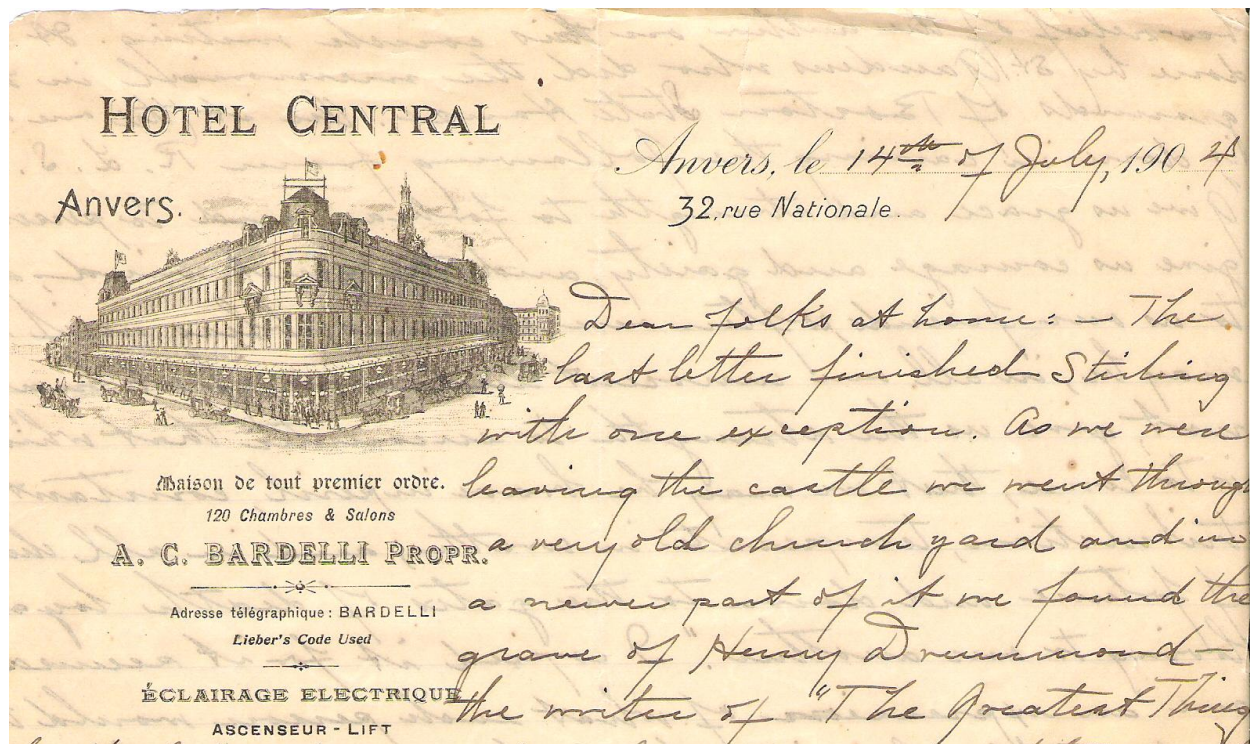 HOTEL CENTRAL
Anvers.
Maison de tout premier ordre.
120 Chambres & Salons
A. C. BARDELLI PROPR.
Adresse télégraphique : BARDELLI
Lieber's Code Used
ÉCLAIRAGE ELECTRIQUE
ASCENSEUR - LIFT
Anvers, le 14th of July, 1904
32, rue Nationale.
Dear folks at home: — The
last letter finished Stirling
with one exception. As we were
leaving the castle we went through
a very old church yard and in
a newer part of it we found the
grave of Henry Drummond —
the writer of "The Greatest Thing